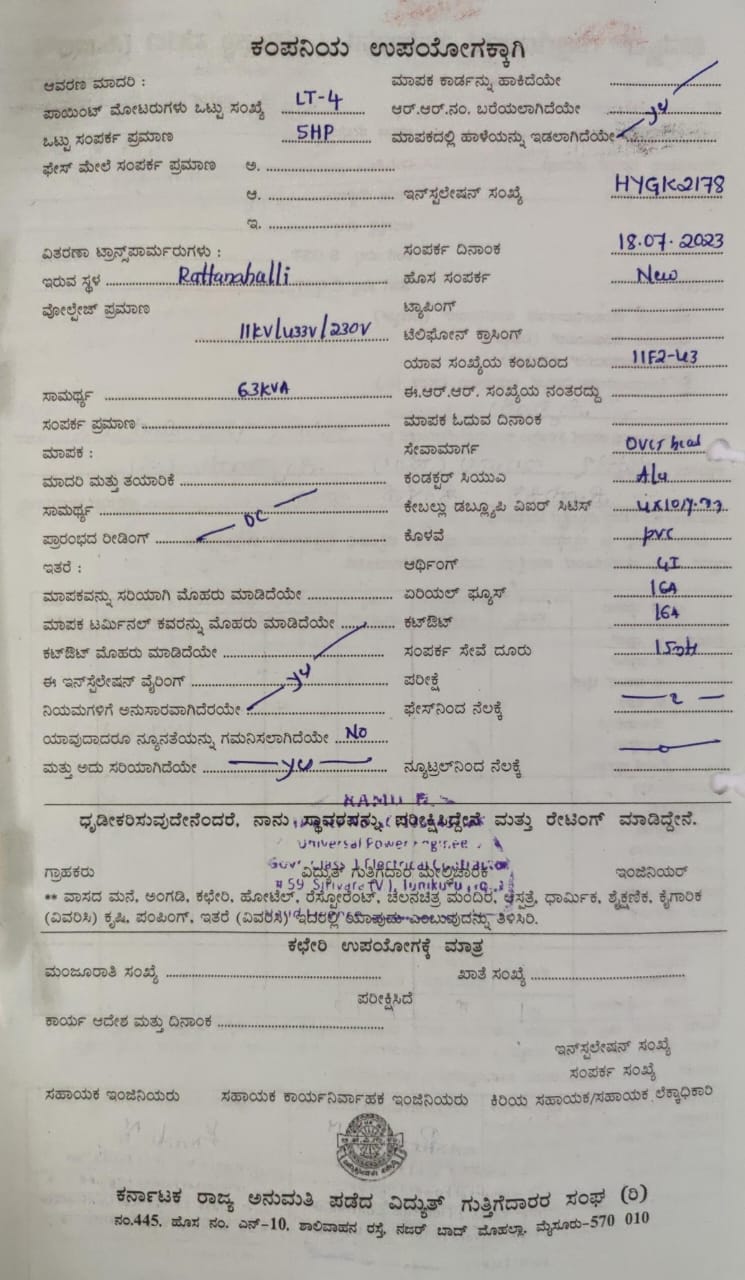 ಕಂಪನಿಯ ಉಪಯೋಗಕ್ಕಾಗಿ
ಆವರಣ ಮಾದರಿ : ಮಾಪಕ ಕಾರ್ಡನ್ನು ಹಾಕಿದೆಯೇ
ಪಾಯಿಂಟ್ ಮೋಟರುಗಳು ಒಟ್ಟು ಸಂಖ್ಯೆ LT-4 ಆರ್.ಆರ್.ನಂ. ಬರೆಯಲಾಗಿದೆಯೇ
ಒಟ್ಟು ಸಂಪರ್ಕ ಪ್ರಮಾಣ 5HP ಮಾಪಕದಲ್ಲಿ ಹಾಳೆಯನ್ನು ಇಡಲಾಗಿದೆಯೇ
ಫೇಸ್ ಮೇಲೆ ಸಂಪರ್ಕ ಪ್ರಮಾಣ ಅ.
ಆ. ಇನ್‌ಸ್ಟಲೇಷನ್ ಸಂಖ್ಯೆ HYGK2178
ಇ.
ವಿತರಣಾ ಟ್ರಾನ್ಸ್‌ಪಾರ್ಮರುಗಳು : ಸಂಪರ್ಕ ದಿನಾಂಕ 18.07.2023
ಇರುವ ಸ್ಥಳ Rattanahalli ಹೊಸ ಸಂಪರ್ಕ New
ವೋಲ್ಟೇಜ್ ಪ್ರಮಾಣ ಟ್ಯಾಪಿಂಗ್
11KV/433V/230V ಟೆಲಿಫೋನ್ ಕ್ರಾಸಿಂಗ್
ಯಾವ ಸಂಖ್ಯೆಯ ಕಂಬದಿಂದ 11F2-43
ಸಾಮರ್ಥ್ಯ 63KVA ಈ.ಆರ್.ಆರ್. ಸಂಖ್ಯೆಯ ನಂತರದ್ದು
ಸಂಪರ್ಕ ಪ್ರಮಾಣ ಮಾಪಕ ಓದುವ ದಿನಾಂಕ
ಮಾಪಕ : ಸೇವಾಮಾರ್ಗ Over head
ಮಾದರಿ ಮತ್ತು ತಯಾರಿಕೆ ಕಂಡಕ್ಟರ್ ಸಿಯುಎ Alu
ಸಾಮರ್ಥ್ಯ ಕೇಬಲ್ಲು ಡಬ್ಲ್ಯೂಪಿ ವಿಐರ್ ಸಿಟಿಸ್
ಪ್ರಾರಂಭದ ರೀಡಿಂಗ್ DC ಕೊಳವೆ pvc
ಇತರೆ : ಆರ್ಥಿಂಗ್ GI
ಮಾಪಕವನ್ನು ಸರಿಯಾಗಿ ಮೊಹರು ಮಾಡಿದೆಯೇ ಏರಿಯಲ್ ಫ್ಯೂಸ್ 16A
ಮಾಪಕ ಟರ್ಮಿನಲ್ ಕವರನ್ನು ಮೊಹರು ಮಾಡಿದೆಯೇ ಕಟ್‌ಔಟ್ 16A
ಕಟ್‌ಔಟ್ ಮೊಹರು ಮಾಡಿದೆಯೇ ಸಂಪರ್ಕ ಸೇವೆ ದೂರು
ಈ ಇನ್‌ಸ್ಟಲೇಷನ್ ವೈರಿಂಗ್ ಪರೀಕ್ಷೆ
ನಿಯಮಗಳಿಗೆ ಅನುಸಾರವಾಗಿದೆರೆಯೇ ಫೇಸ್‌ನಿಂದ ನೆಲಕ್ಕೆ
ಯಾವುದಾದರೂ ನ್ಯೂನತೆಯನ್ನು ಗಮನಿಸಲಾಗಿದೆಯೇ No
ಮತ್ತು ಅದು ಸರಿಯಾಗಿದೆಯೇ yes ನ್ಯೂಟ್ರಲ್‌ನಿಂದ ನೆಲಕ್ಕೆ
ಧೃಡೀಕರಿಸುವುದೇನೆಂದರೆ, ನಾನು ಸ್ಥಾವರವನ್ನು ಪರೀಕ್ಷಿಸಿದ್ದೇನೆ ಮತ್ತು ರೇಟಿಂಗ್ ಮಾಡಿದ್ದೇನೆ.
Universal Power Engineer
Govt Class I Electrical Contractor
ಗ್ರಾಹಕರು ವಿದ್ಯುತ್ ಗುತ್ತಿಗೆದಾರ ಮೇಲ್ವಿಚಾರಕ ಇಂಜಿನಿಯರ್
** ವಾಸದ ಮನೆ, ಅಂಗಡಿ, ಕಛೇರಿ, ಹೋಟೆಲ್, ರೆಸ್ಟೋರೆಂಟ್, ಚಲನಚಿತ್ರ ಮಂದಿರ, ಆಸ್ಪತ್ರೆ, ಧಾರ್ಮಿಕ, ಶೈಕ್ಷಣಿಕ, ಕೈಗಾರಿಕ
(ವಿವರಿಸಿ) ಕೃಷಿ, ಪಂಪಿಂಗ್, ಇತರೆ (ವಿವರಿಸಿ) ಇದರಲ್ಲಿ ಯಾವುದು ಎಂಬುವುದನ್ನು ತಿಳಿಸಿರಿ.
ಕಛೇರಿ ಉಪಯೋಗಕ್ಕೆ ಮಾತ್ರ
ಮಂಜೂರಾತಿ ಸಂಖ್ಯೆ ಖಾತೆ ಸಂಖ್ಯೆ
ಪರೀಕ್ಷಿಸಿದೆ
ಕಾರ್ಯ ಆದೇಶ ಮತ್ತು ದಿನಾಂಕ
ಇನ್‌ಸ್ಟಲೇಷನ್ ಸಂಖ್ಯೆ
ಸಂಪರ್ಕ ಸಂಖ್ಯೆ
ಸಹಾಯಕ ಇಂಜಿನಿಯರು ಸಹಾಯಕ ಕಾರ್ಯನಿರ್ವಾಹಕ ಇಂಜಿನಿಯರು ಕಿರಿಯ ಸಹಾಯಕ/ಸಹಾಯಕ ಲೆಕ್ಕಾಧಿಕಾರಿ
ಕರ್ನಾಟಕ ರಾಜ್ಯ ಅನುಮತಿ ಪಡೆದ ವಿದ್ಯುತ್ ಗುತ್ತಿಗೆದಾರರ ಸಂಘ (ರಿ)
ನಂ.445, ಹೊಸ ನಂ. ಎನ್-10, ಶಾಲಿವಾಹನ ರಸ್ತೆ, ನಜರ್ ಬಾದ್ ಮೊಹಲ್ಲಾ, ಮೈಸೂರು-570 010